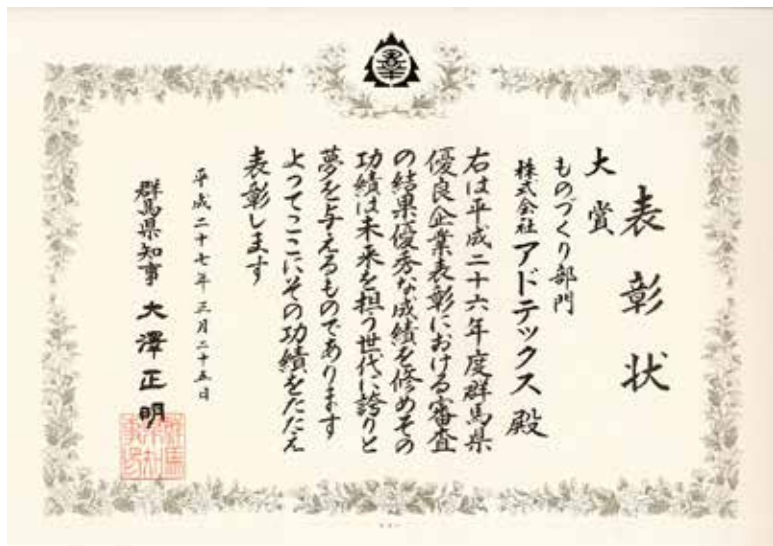 表彰状
大賞
ものづくり部門
株式会社アドテックス殿
右は平成二十六年度群馬県
優良企業表彰における審査
の結果優秀な成績を修めその
功績は未来を担う世代に誇りと
夢を与えるものであります
よってここにその功績をたたえ
表彰します
平成二十七年三月二十五日
群馬県知事 大澤正明